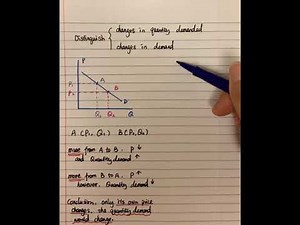 Distinguish { changes in quantity demanded
changes in demand
P
P₁
P₂
A
B
D
Q₁ Q₂ Q
A (P₁, Q₁) B (P₂, Q₂)
move from A to B. P ↓
and Quantity demand ↑
move from B to A. P ↑
however, Quantity demand ↓
Conclusion. only its own price
changes, the quantity demand
would change.